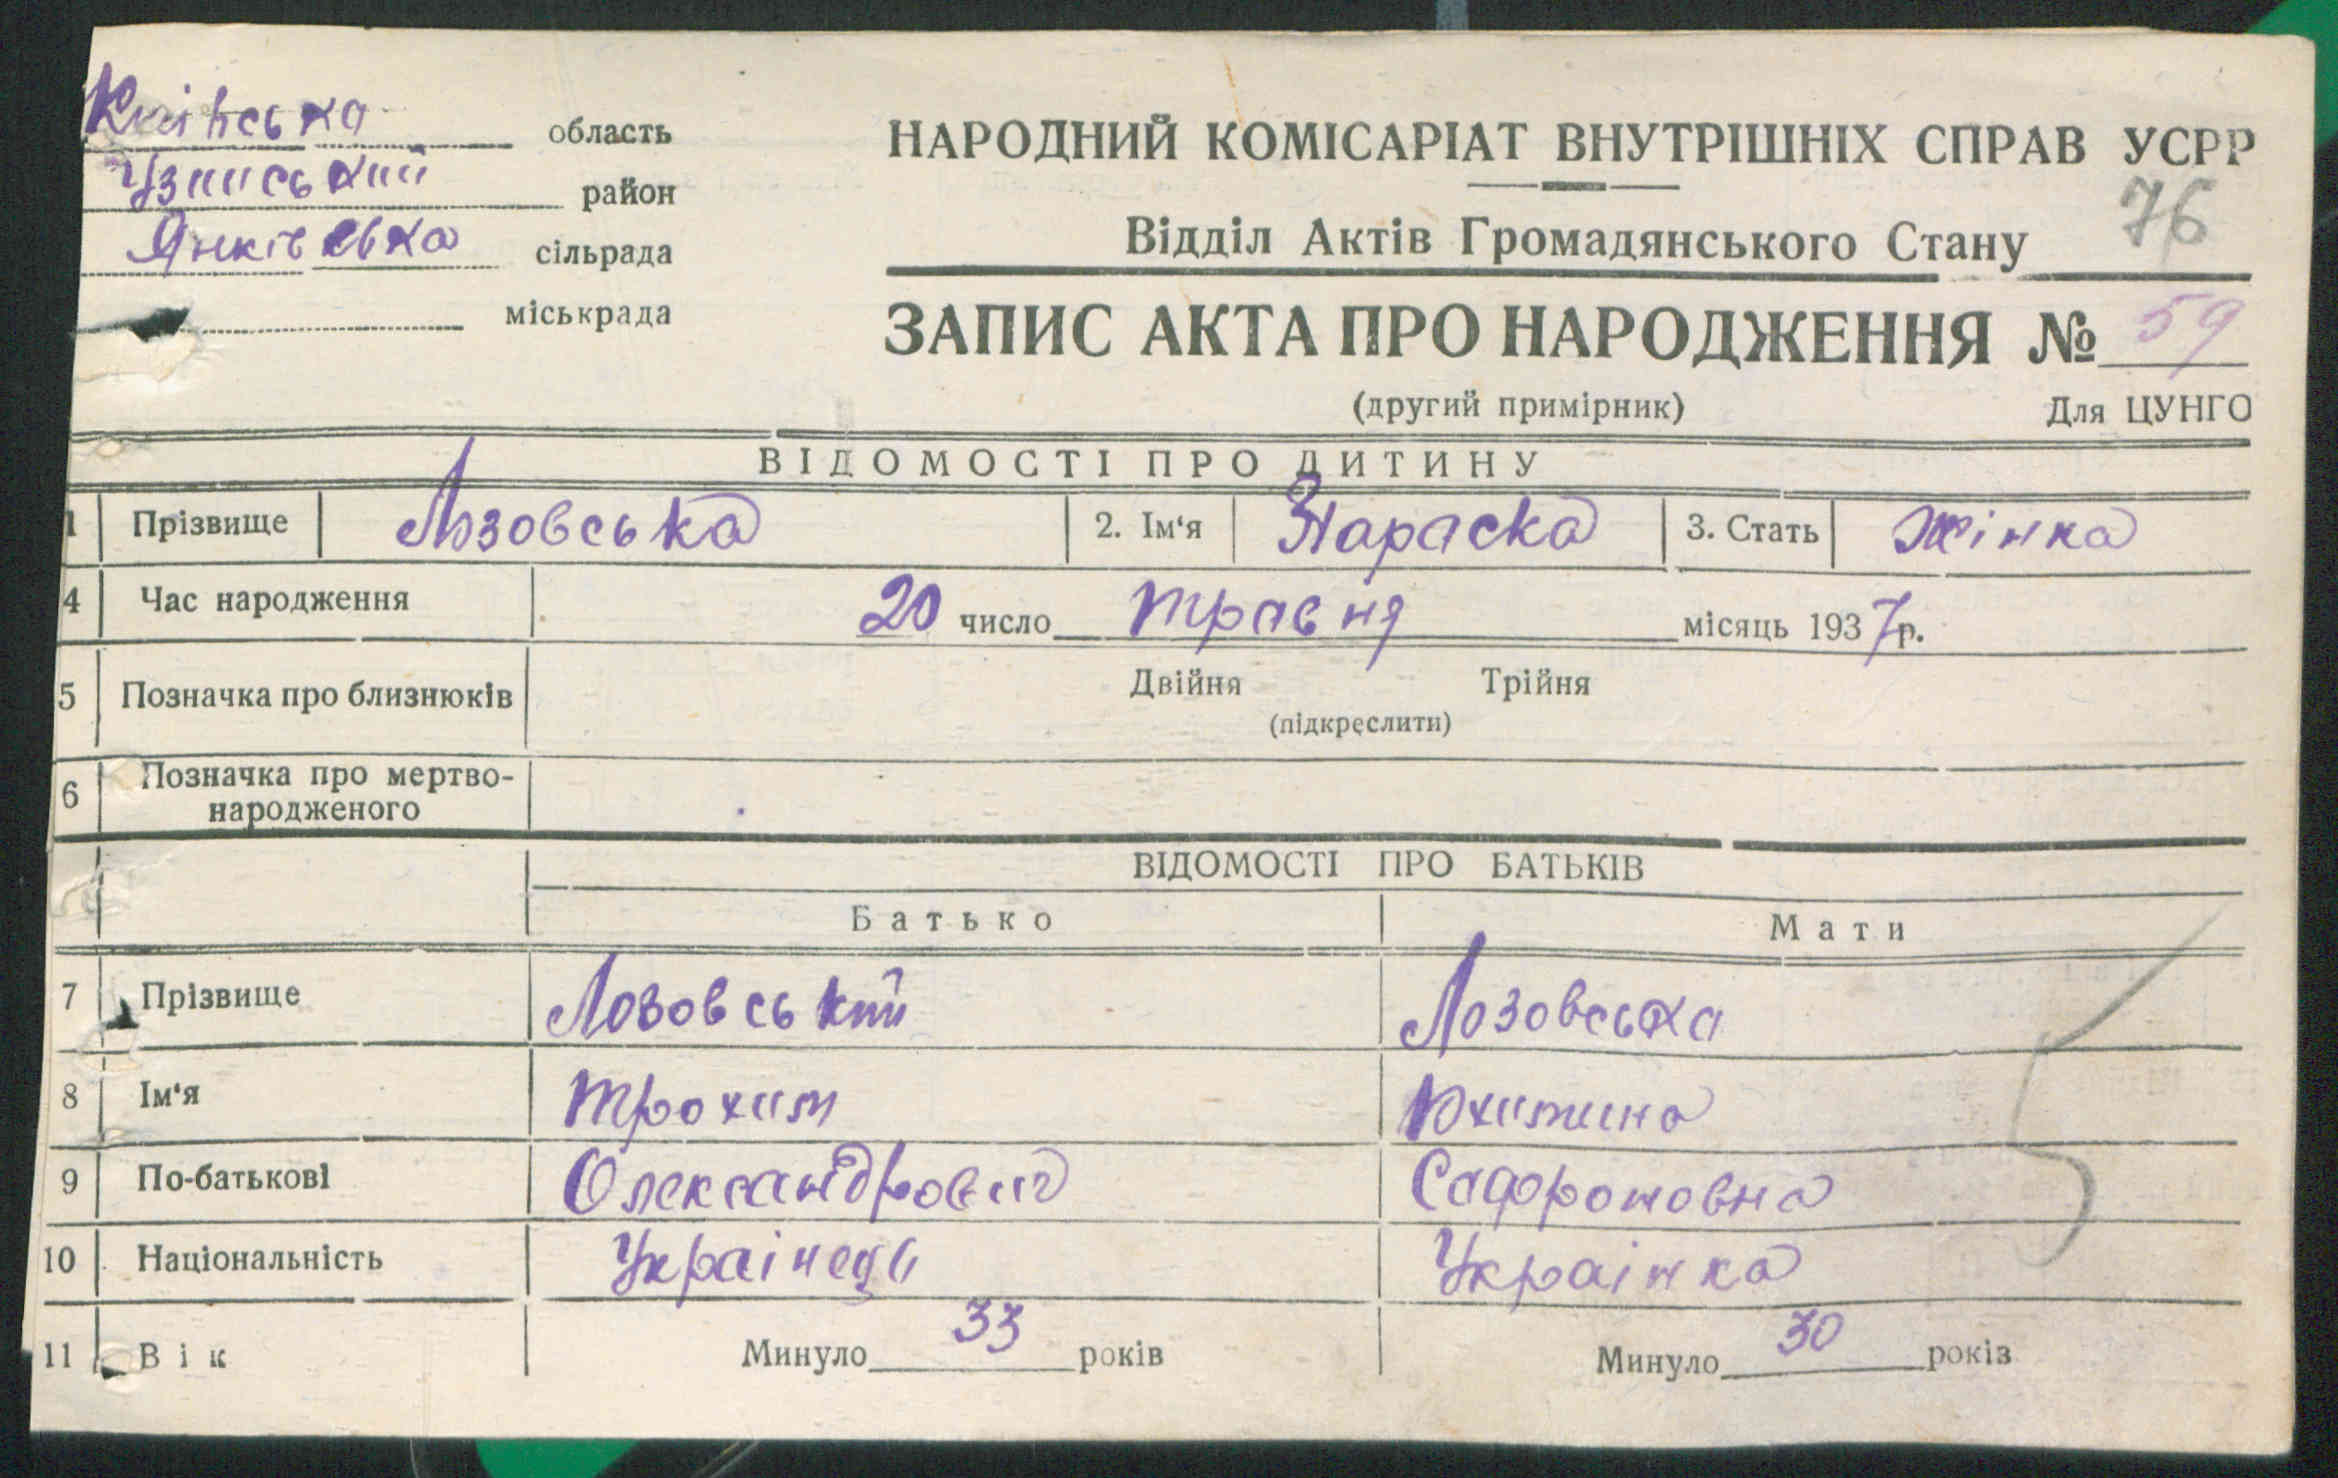 Київська область
Узинський район
Янківська сільрада
міськрада
НАРОДНИЙ КОМІСАРІАТ ВНУТРІШНІХ СПРАВ УСРР
76
Відділ Актів Громадянського Стану
ЗАПИС АКТА ПРО НАРОДЖЕННЯ № 59
(другий примірник) Для ЦУНГО
ВІДОМОСТІ ПРО ДИТИНУ
1 Прізвище Лозовська 2. Ім‘я Параска 3. Стать Жінка
4 Час народження 20 число травня місяць 1937 р.
5 Позначка про близнюків Двійня Трійня
(підкреслити)
6 Позначка про мертво-
народженого
ВІДОМОСТІ ПРО БАТЬКІВ
Батько Мати
7 Прізвище Лозовський Лозовська
8 Ім‘я Трохим Юхимина
9 По-батькові Олександрович Сафроновна
10 Національність Украінець Украінка
11 Вік Минуло 33 років Минуло 30 років